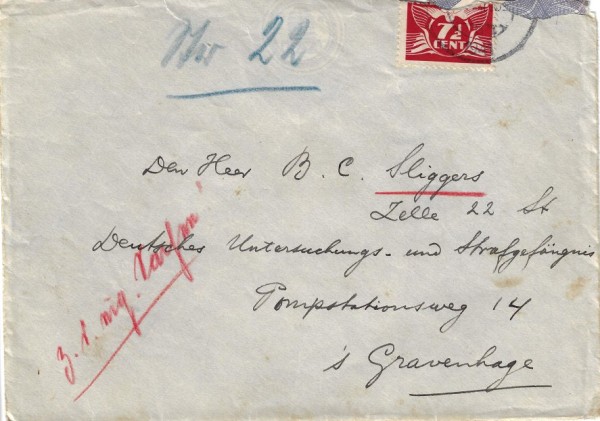 22
7½
CENT
Den Heer B. C. Sliggers
Zelle 22 St
Deutsches Untersuchungs- und Strafgefängnis
Pompstationsweg 14
's Gravenhage